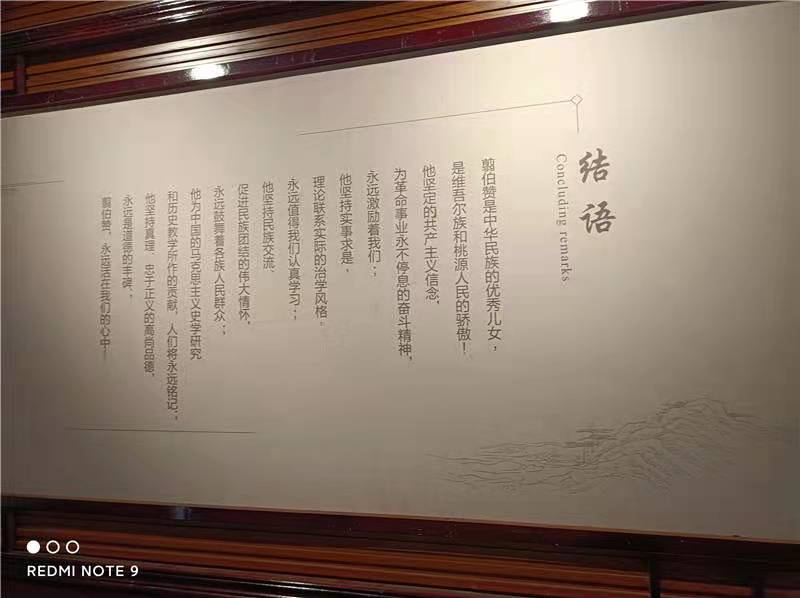 结语
Concluding remarks
翦伯赞是中华民族的优秀儿女，
是维吾尔族和桃源人民的骄傲！
他坚定的共产主义信念，
为革命事业永不停息的奋斗精神，
永远激励着我们；
他坚持实事求是、
理论联系实际的治学风格，
永远值得我们认真学习；
他坚持民族交流、
促进民族团结的伟大情怀，
永远鼓舞着各族人民群众；
他为中国的马克思主义史学研究
和历史教学所作的贡献，人们将永远铭记；
他坚持真理、忠于正义的高尚品德，
永远是道德的丰碑。
翦伯赞，永远活在我们的心中！
REDMI NOTE 9